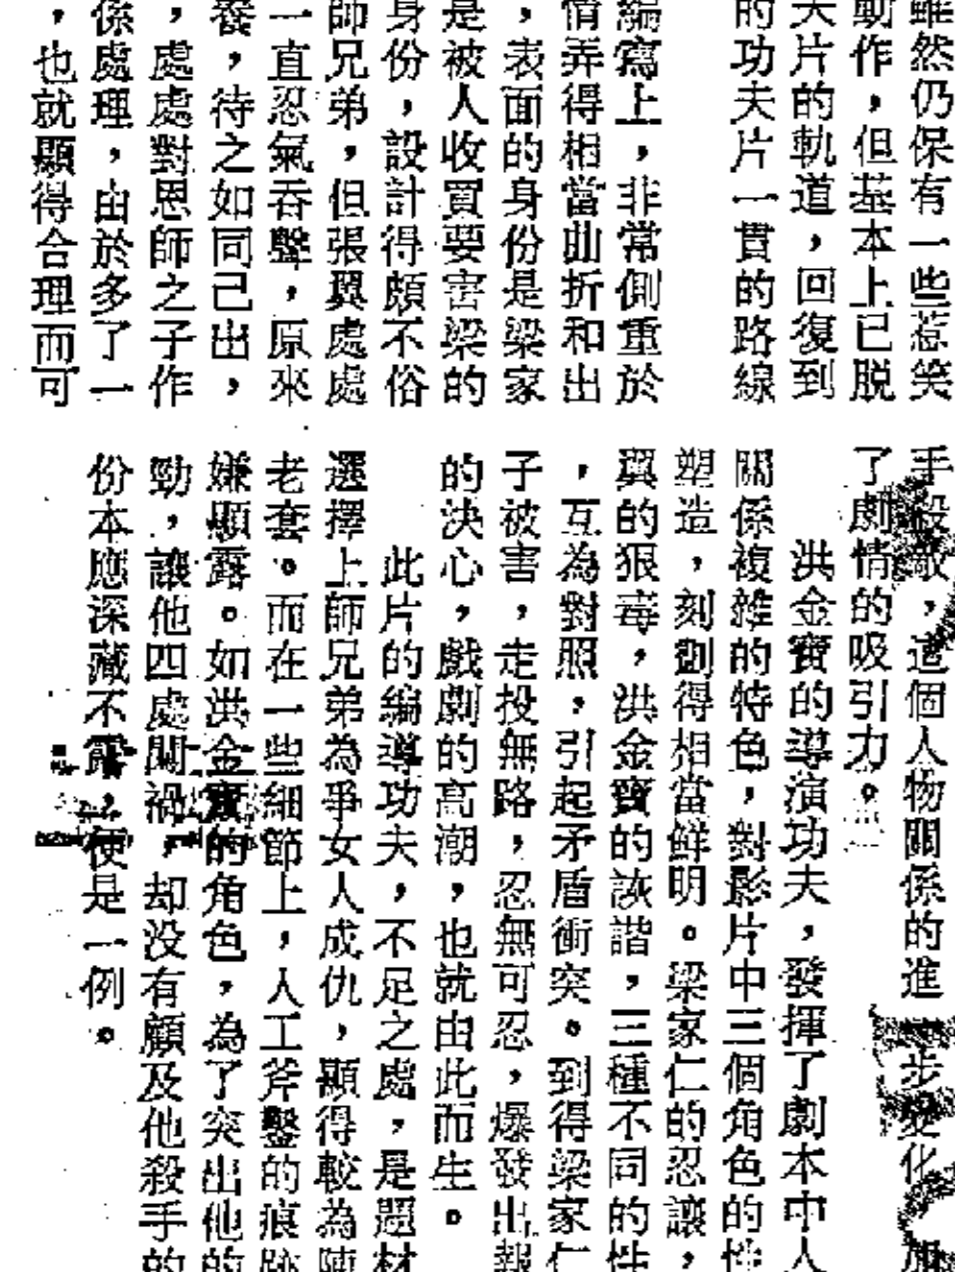 雖然仍保有一些惹笑
動作，但基本上已脱
夫片的軌道，回復到
的功夫片一貫的路線
編寫上，非常側重於
情弄得相當曲折和出
，表面的身份是梁家
是被人收買要害梁的
身份，設計得頗不俗
師兄弟，但張翼處處
一直忍氣吞聲，原來
養，待之如同己出，
，處處對恩師之子作
係處理，由於多了一
，也就顯得合理而可
手殺敵，這個人物關係的進一步變化，加
了劇情的吸引力。
洪金寶的導演功夫，發揮了劇本中人
關係複雜的特色，對影片中三個角色的性
塑造，刻劃得相當鮮明。梁家仁的忍讓，
翼的狠毒，洪金寶的詼諧，三種不同的性
，互為對照，引起矛盾衝突。到得梁家仁
子被害，走投無路，忍無可忍，爆發出報
的決心，戲劇的高潮，也就由此而生。
此片的編導功夫，不足之處，是題材
選擇上師兄弟為爭女人成仇，顯得較為陳
老套。而在一些細節上，人工斧鑿的痕跡
嫌顯露。如洪金寶的角色，為了突出他的
勁，讓他四處闖禍，却没有顧及他殺手的
份本應深藏不露，便是一例。